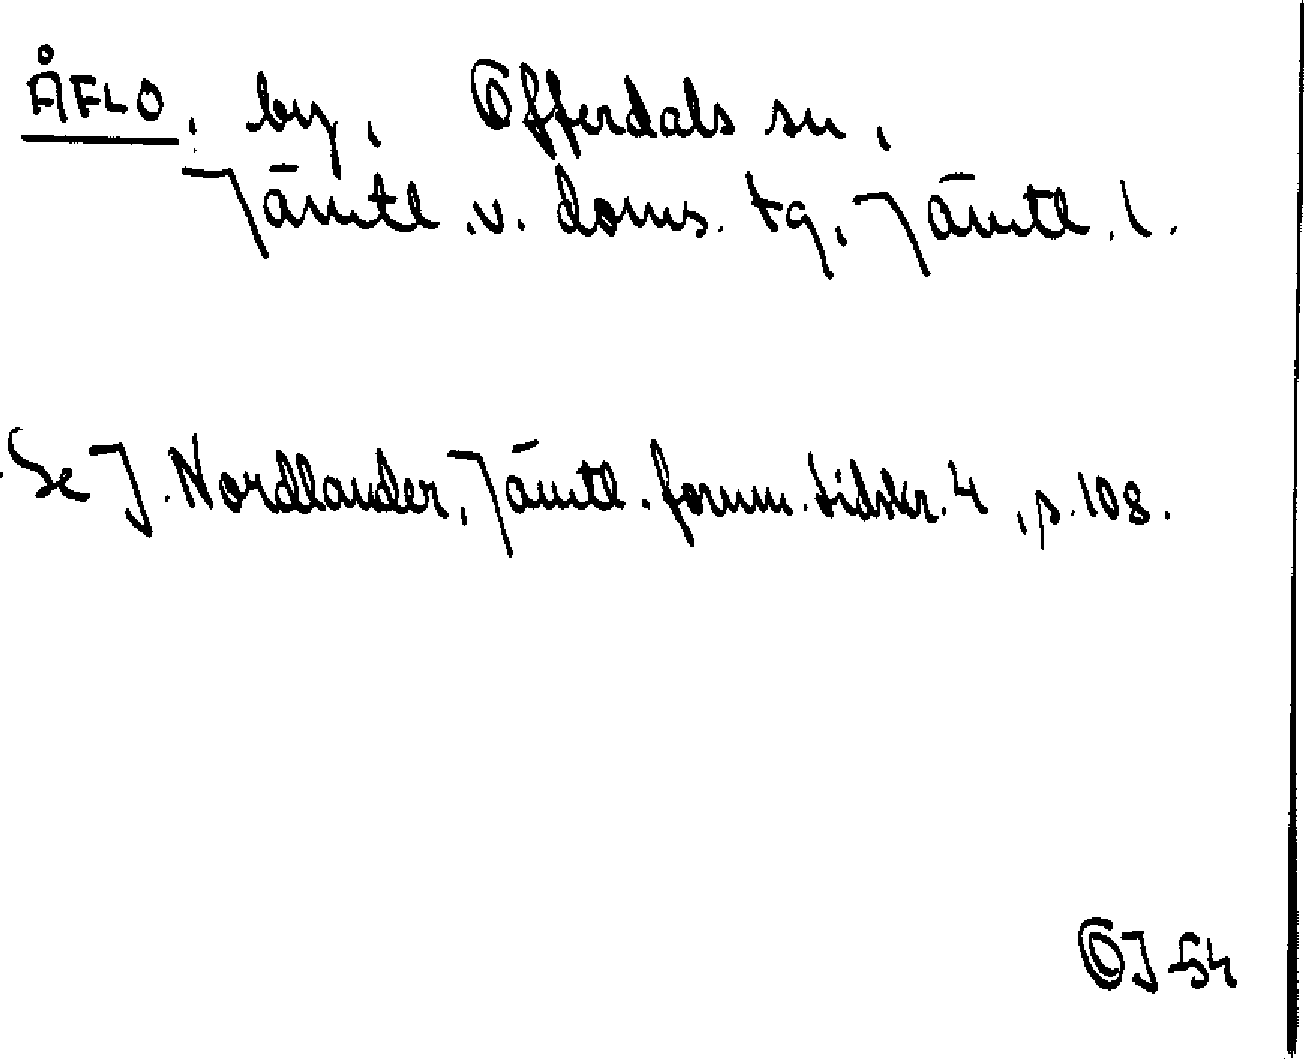 ÅFLO, by, Offerdals sn,
Jämtl. v. doms. tg, Jämtl. l.
Se J. Nordlander, Jämtl. fornm. tidskr. 4, s. 108.
OJ 54